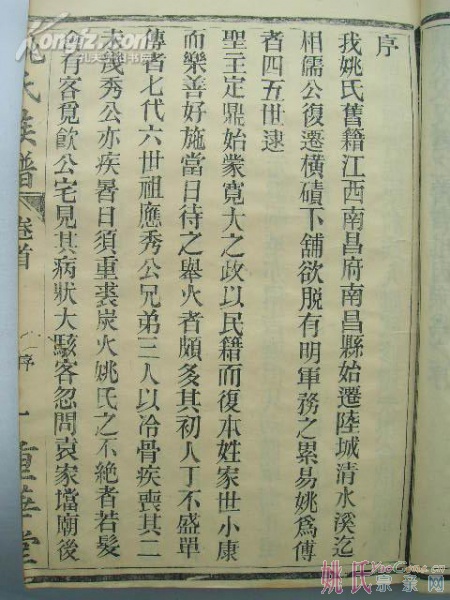 序
我姚氏舊籍江西南昌府南昌縣始遷陸城清水溪迄
相儒公復遷橫磧下舖欲脫有明軍務之累易姚爲傅
者四五世逮
聖主定鼎始蒙寬大之政以民籍而復本姓家世小康
而樂善好施當日待之舉火者頗多其初人丁不盛單
傳者七代六世祖應秀公兄弟三人以冷骨疾喪其二
大茂秀公亦疾暑日須重裘炭火姚氏之不絕者若髮
有客覓飲公宅見其病狀大駭客忽問袁家壋廟後
姚氏族譜 卷首 序 一 重華堂
姚氏宗亲网
YaoGens.cn